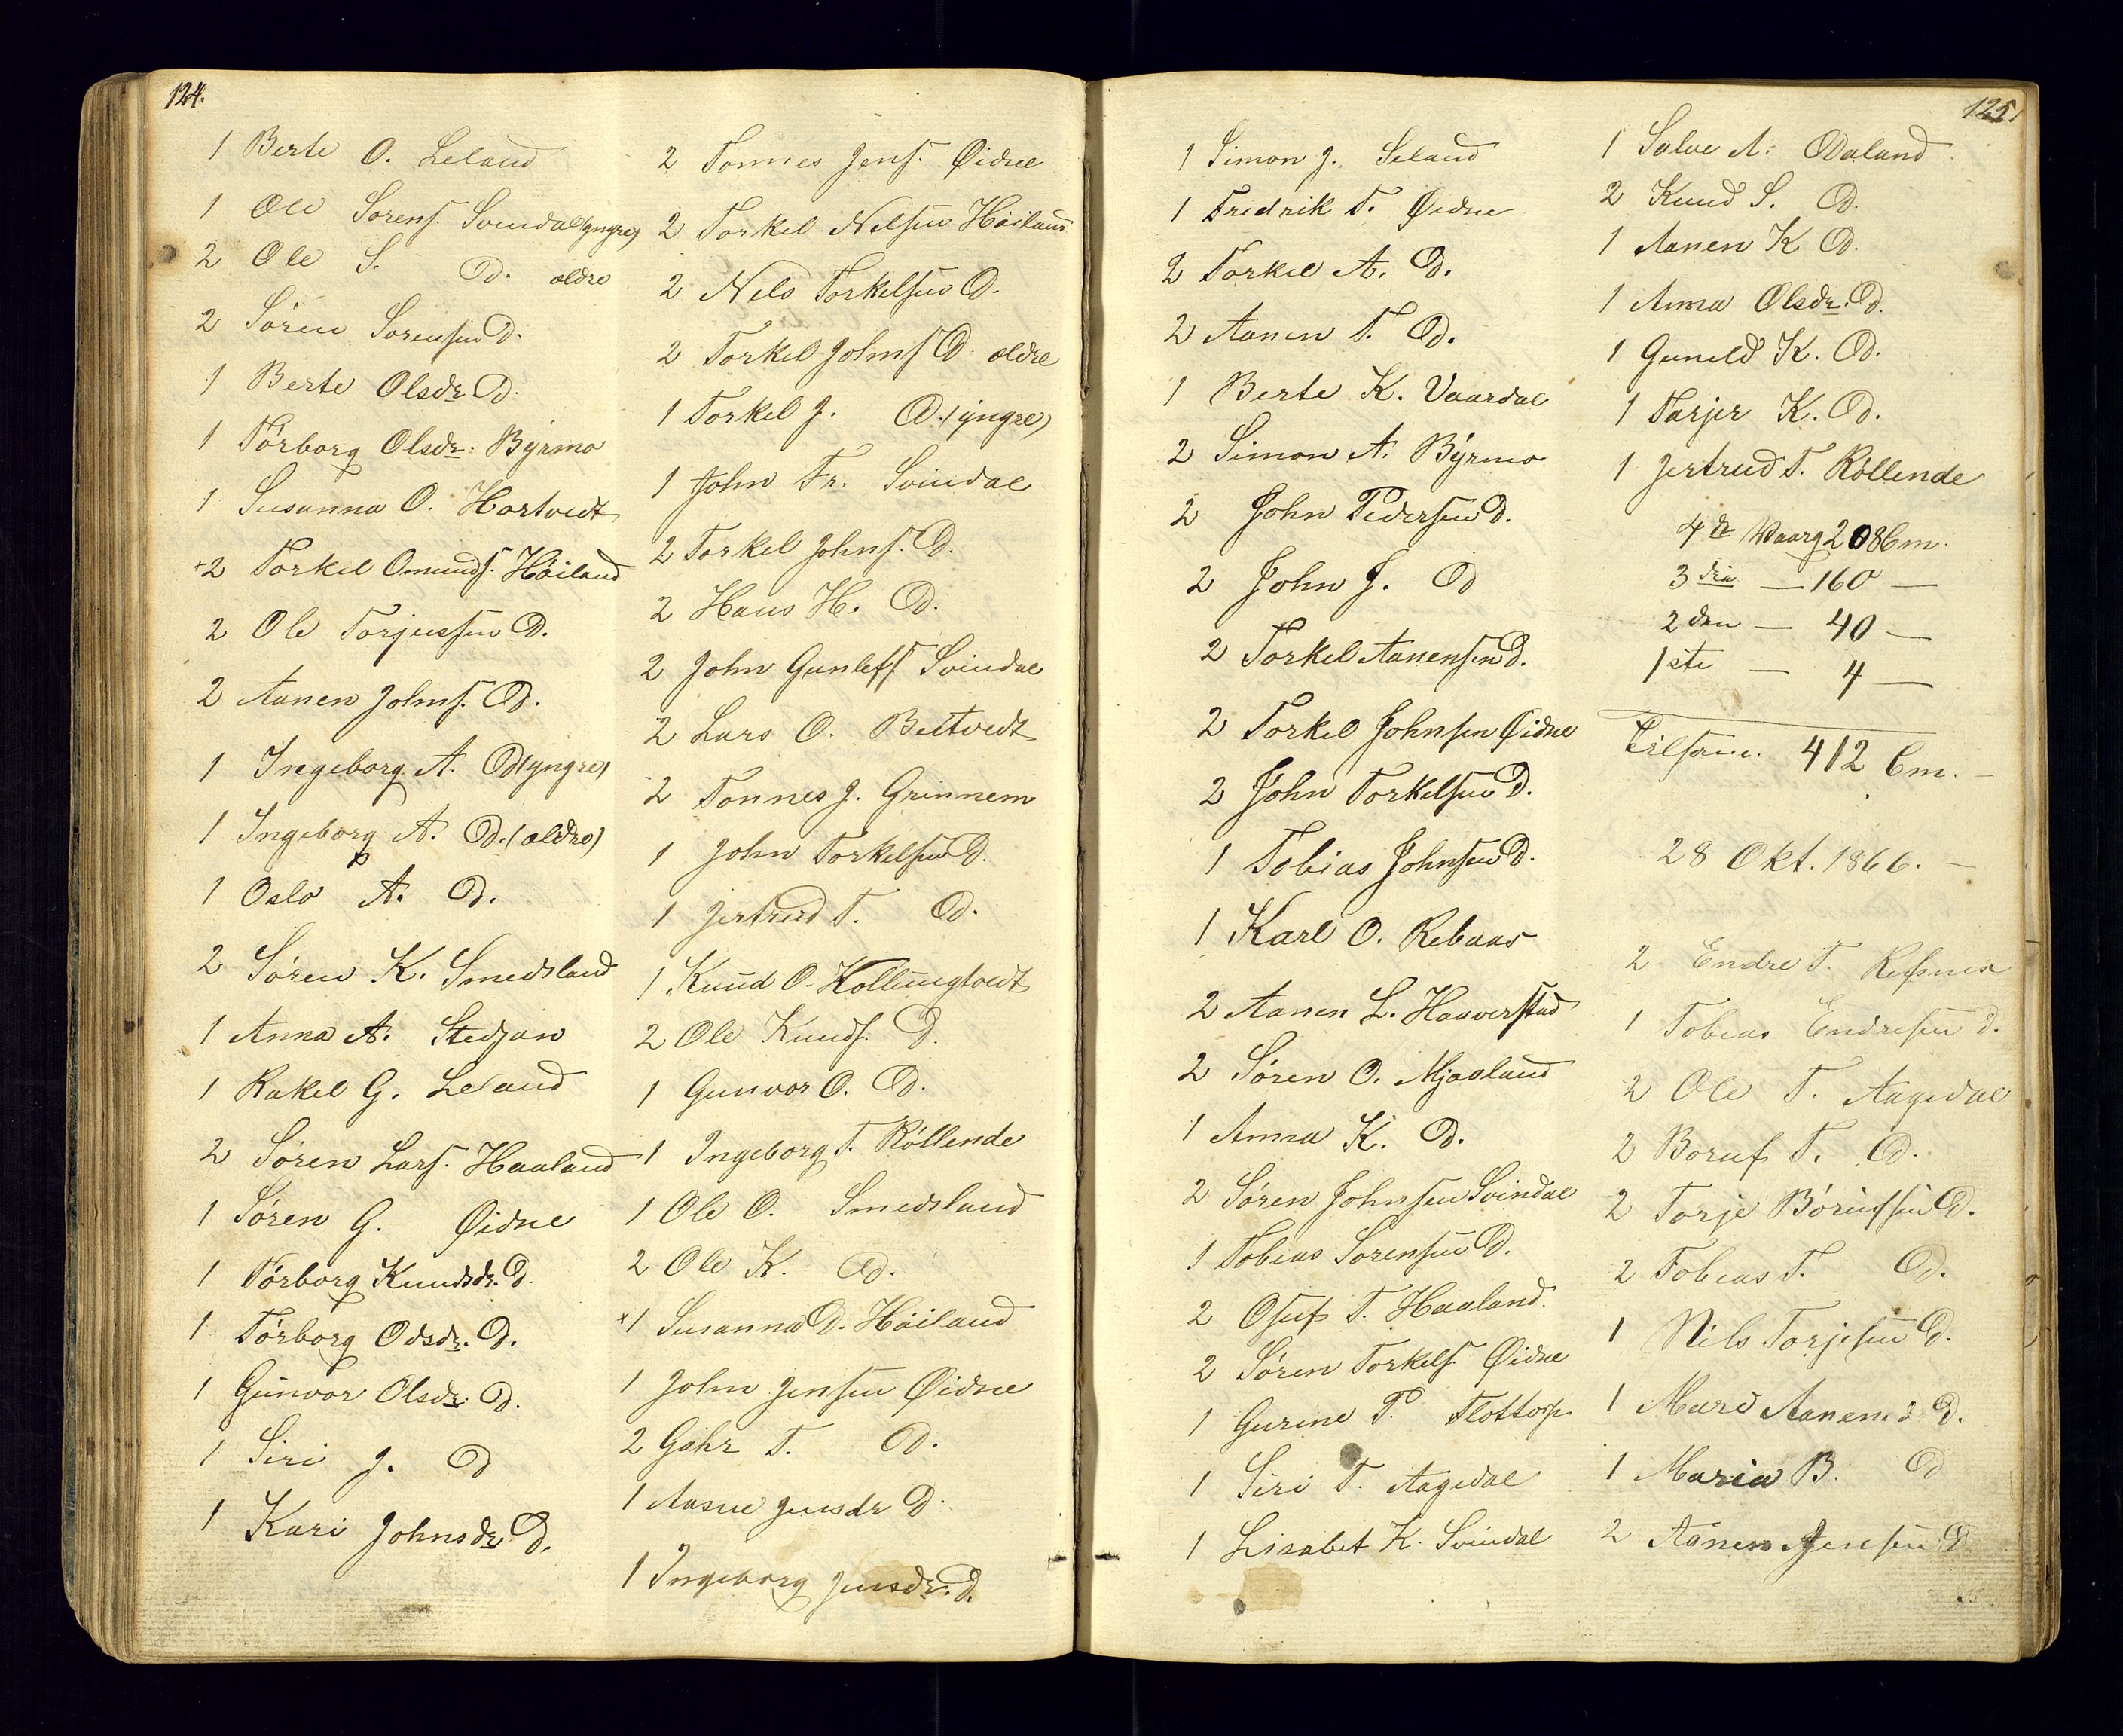 124.
1 Berte O. Leland
1 Ole Sorens. Svindal (yngre)
2 Ole S. D. ældre
2 Søren Sorensen D.
1 Berte Olsdr. D.
1 Tørborg Olsdr. Byrmo
1 Susanna O. Hortvedt
+2 Torkel Omunds. Høiland
2 Ole Torjussen D.
2 Aanen Johns. D.
1 Ingeborg A. D. (yngre)
1 Ingeborg A. D. (ældre)
1 Oslo A. D.
2 Søren K. Smedsland
1 Anna A. Stedjan
1 Rakel G. Leland
2 Søren Lars. Haaland
1 Søren G. Øidne
1 Tørborg Knudsdr. D.
1 Tørborg Odsdr. D.
1 Gunvor Olsdr. D.
1 Siri J. D
1 Kari Johnsdr. D.
2 Tonnes Jens. Øidne
2 Torkel Nelsen Høiland
2 Nels Torkelsen D.
2 Torkel Johns. D. ældre
1 Torkel J. D. (yngre)
1 John Fr. Svindal
2 Torkel Johns. D.
2 Hans H. D.
2 John Gunlefs. Svindal
2 Lars O. Bestvedt
2 Tonnes J. Grinnem
1 John Torkelsen D.
1 Jertrud T. D.
1 Knud O. Kollungtvedt
2 Ole Knuds. D.
1 Gunvor O. D.
1 Ingeborg T. Røllende
1 Ole O. Smedsland
2 Ole K. D.
+1 Susanna D. Høiland
1 John Jensen Øidne
2 Gehr T. D.
1 Aasne Jensdr D.
1 Ingeborg Jensdr. D.
125.
1 Simon J. Seland
1 Fredrik T. Øidne
2 Torkel A. D.
2 Aanen T. D.
1 Berte K. Vaardal
2 Simon A. Byrmo
2 John Pedersen D.
2 John J. D
2 Torkel Aanensen D.
2 Torkel Johnsen Øidne
2 John Torkelsen D.
1 Tobias Johnsen D.
1 Karl O. Rebaas
2 Aanen L. Haaverstad
2 Søren O. Mjaaland
1 Anna K. D.
2 Søren Johnsen Svindal
1 Tobias Sorensen D.
2 Osuf T. Haaland.
2 Søren Torkels. Øidne
1 Gurine P. Flottorp
1 Siri T. Aagedal
1 Lisabet K. Svindal
1 Salve A. Odaland
2 Knud S. D.
1 Aanen K D.
1 Anna Olsdr. D.
1 Gunild K. D.
1 Tarjer K. D.
1 Jertrud T. Røllende
4de Vaarg 208 Cm.
3die — 160 —
2den — 40 —
1ste — 4 —
Tilsam. 412 Cm. —
28 Okt. 1866. —
2 Endre T.
1 Tobias Endresen D.
2 Ole T. Aagedal
2 Boruf T. D.
2 Torje Børufsen D.
2 Tobias T. D.
1 Nils Torjesen D.
1 Mari Aanensd D.
1 Maria B. D
2 Aanen Jensen D